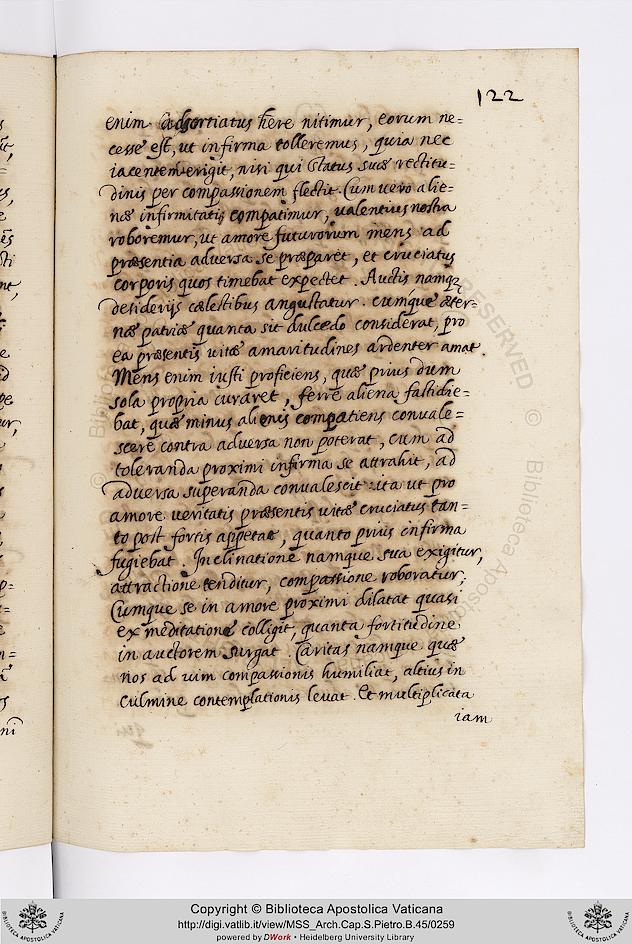 122
enim adsortiatus here nitimur, eorum ne=
cesse est, ut infirma tolleremus, quia nec
iacentem erigit, nisi qui status suæ rectitu=
dinis per compassionem flectit. Cum vero alie=
næ infirmitatis compatimur, valentius nostra
roboremur, ut amore futurorum mens ad
præsentia adversa se præparet, et cruciatus
corporis quos timebat expectet. Auctis namq;
desiderijs cælestibus angustatur. cumque æter=
næ patriæ quanta sit dulcedo considerat, pro
ea præsentis vitæ amaritudines ardenter amat.
Mens enim iusti proficiens, quæ prius dum
sola propria curaret, ferre aliena fastidie=
bat, quæ minus alienis compatiens convale=
scere contra adversa non poterat, cum ad
toleranda proximi infirma se attrahit, ad
adversa superanda convalescit: ita ut pro
amore veritatis præsentis vitæ cruciatus tan=
to post fortis appetat, quanto prius infirma
fugiebat. Inclinatione namque sua exigitur,
attractione tenditur, compassione roboratur;
Cumque se in amore proximi dilatat quasi
ex meditatione colligit, quanta fortitudine
in auctorem surgat. Caritas namque quæ
nos ad vim compassionis humiliat, altius in
culmine contemplationis levat. Et multiplicata
iam
Copyright © Biblioteca Apostolica Vaticana
http://digi.vatlib.it/view/MSS_Arch.Cap.S.Pietro.B.45/0259
powered by DWork • Heidelberg University Library